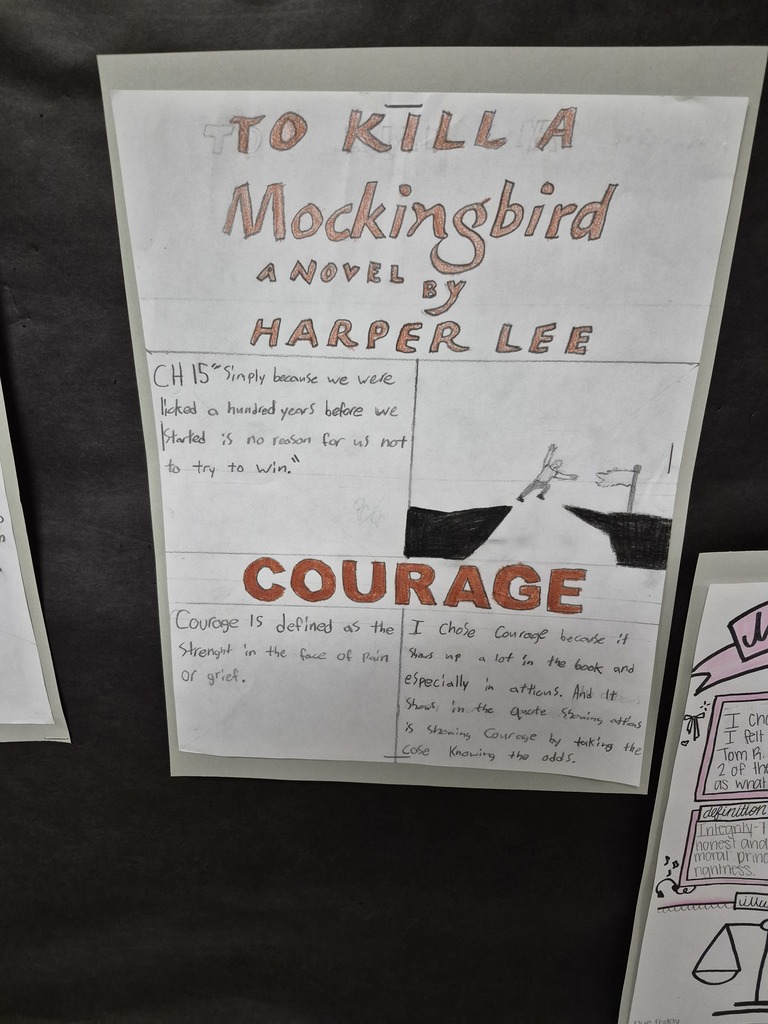 TO KILL A
Mockingbird
A NOVEL BY
HARPER LEE
CH 15 "Simply because we were
licked a hundred years before we
started is no reason for us not
to try to win."
COURAGE
Courage is defined as the
Strenght in the face of pain
or grief.
I chose Courage because it
shows up a lot in the book and
especially in atticus. And it
shows in the quote showing atticus
is showing Courage by taking the
case Knowing the odds.
I cho
I felt
Tom R.
2 of the
as what
definition
Integrity-
honest and
moral princ
rightness.